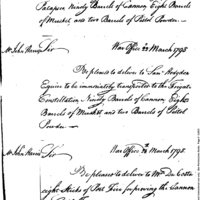 Saraper Ninety Barrels of Cannon, Eight Barrels
of Musket, and two Barrels of Pistol Powder.
Mr John Harris Sir War Office March 1798
Be pleased to deliver to Saml Hodgdon
Esquire to be immediately transported to the Frigate
Constellation, Ninety Barrels of Cannon, Eight
Barrels of Musket, and two Barrels of Pistol
Powder
Mr John Harris Sir War Office March 1798.
Be pleased to deliver to Mr Da Costa
eight Sticks of Port Fire for proving the Cannon